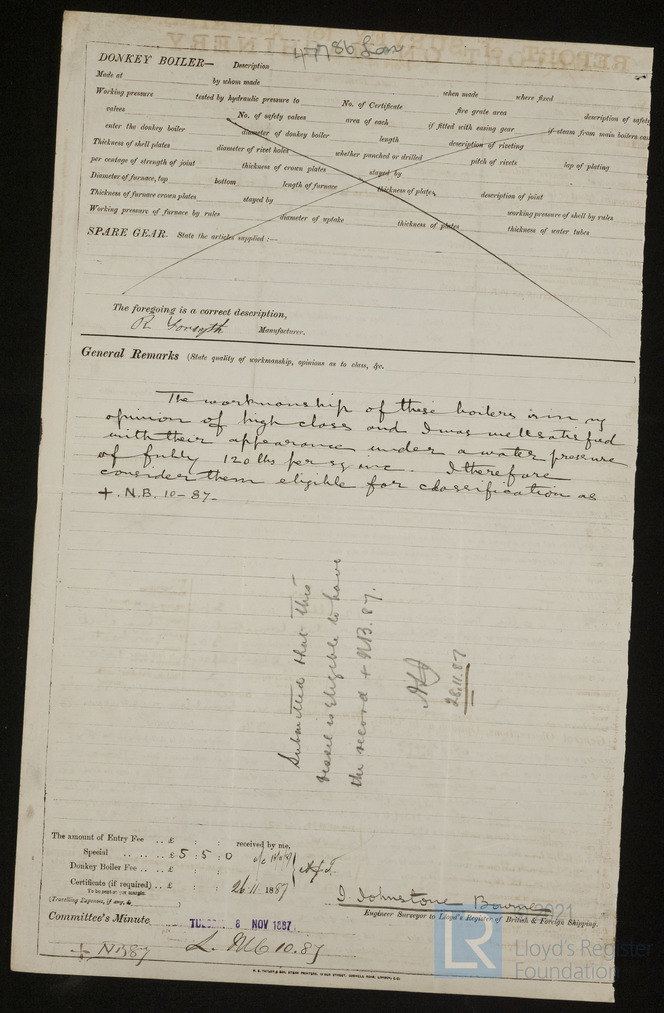 47786 Lon
DONKEY BOILER— Description
Made at by whom made when made where fixed
Working pressure tested by hydraulic pressure to No. of Certificate fire grate area description of safety
valves No. of safety valves area of each if fitted with easing gear if steam from main boilers can
enter the donkey boiler diameter of donkey boiler length description of riveting
Thickness of shell plates diameter of rivet holes whether punched or drilled pitch of rivets lap of plating
per centage of strength of joint thickness of crown plates stayed by
Diameter of furnace, top bottom length of furnace thickness of plates, description of joint
Thickness of furnace crown plates stayed by working pressure of shell by rules
Working pressure of furnace by rules diameter of uptake thickness of plates thickness of water tubes
SPARE GEAR. State the articles supplied :—
The foregoing is a correct description,
R. Forsyth Manufacturer.
General Remarks (State quality of workmanship, opinions as to class, &c.
The workmanship of these boilers is in my
opinion of high class and I was well satisfied
with their appearance under a water pressure
of fully 120 lbs per sq inc. I therefore
consider them eligible for classification as
+. N.B. 10-87-
Submitted that this
vessel is eligible to have
the record + NB. 87.
28.11.87
The amount of Entry Fee .. £ : : received by me,
Special .. .. .. £ 5 : 5 : 0
Donkey Boiler Fee .. .. £ : :
Certificate (if required) .. £ : : 26.11.1887
To be sent as per margin.
(Travelling Expenses, if any, £ )
Johnstone Bourne
Engineer Surveyor to Lloyd's Register of British & Foreign Shipping.
Committee's Minute TUESDAY 8 NOV 1887
+ NB87 L. MC 10.87
2021
LR Lloyd's Register
Foundation